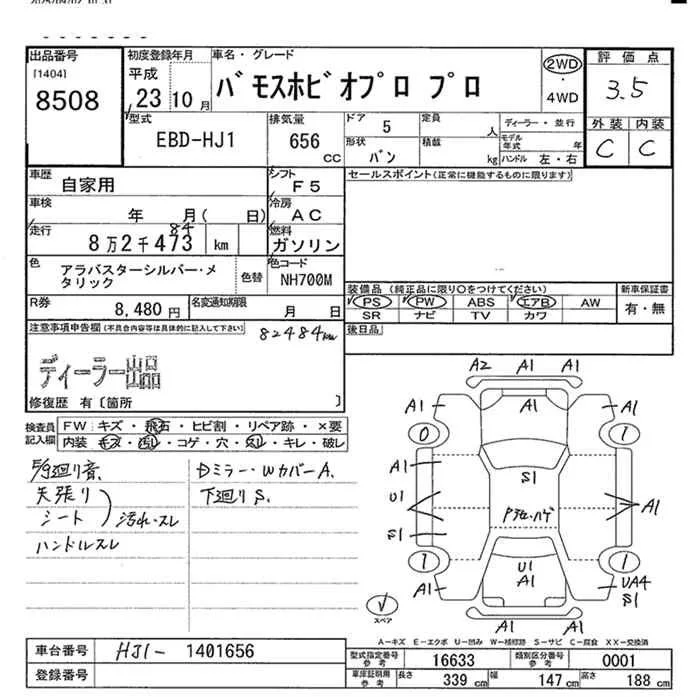 出品番号
[1404]
8508
初度登録年月
平成
23 10 月
車名・グレード
バモスホビオプロ プロ
2WD
・
4WD
評価点
3.5
外装 内装
C C
型式
EBD-HJ1
排気量
656
cc
ドア 5
定員 人
ディーラー・並行
モデル年式 年
形状 バン
積載 kg
ハンドル 左・右
車歴
自家用
シフト
F5
セールスポイント(正常に機能するものに限ります)
車検
年 月( 日)
冷房
AC
走行
84
8万2千473 km
燃料
ガソリン
色
アラバスターシルバー・メタリック
色替
色コード
NH700M
装備品 (純正品に限り○をつけてください)
PS PW ABS エアB AW
SR ナビ TV カワ
新車保証書
有・無
R券
8,480円
名変通知期限
月 日
後日品
注意事項申告欄(不具合内容等は具体的に記入して下さい)
82484km
ディーラー出品
修復歴 有〔箇所 〕
検査員記入欄
FW:キズ・飛石・ヒビ割・リペア跡・×要
内装 キズ・汚れ・コゲ・穴・スレ・キレ・破レ
天張り
シート
汚れ・スレ
ハンドルスレ
Dミラー・WカバーA.
下廻りS.
A2 A1 A1
A1 A1 A1
0 1
A1 S1
U1 A1
S1
1 U1 1
A1 A1 UA4
S1
スペア
A-キズ E-エクボ U-凹み W-補修跡 S-サビ C-腐食 XX-交換済
車台番号 HJ1- 1401656
登録番号
型式指定番号 参考 16633
類別区分番号 参考 0001
車庫証明用 参考 長さ 339 cm 幅 147 cm 高さ 188 cm